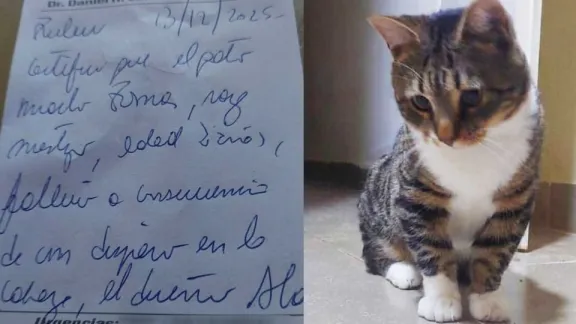 Dr. Daniel
13/12/2025
Certifico que el gato
macho Tomas, raza
mestizo, edad 2 años,
falleció a consecuencia
de un disparo en la
cabeza, el dueño Alo
Urgencias: